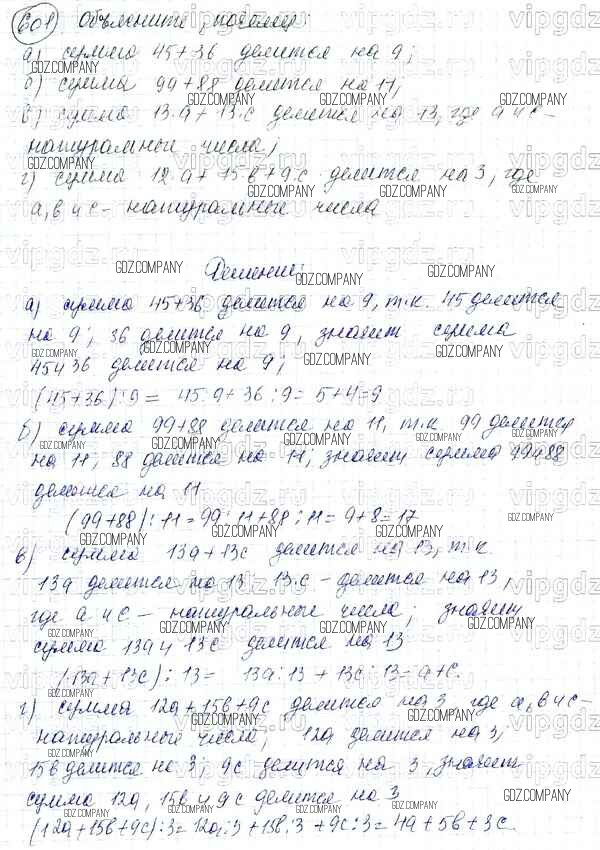 601 Объясните, почему:
а) сумма 45+36 делится на 9;
б) сумма 99+88 делится на 11;
в) сумма 13·а+13·с делится на 13, где а и с –
натуральные числа;
г) сумма 12·а+15·в+9·с делится на 3, где
а, в и с – натуральные числа
Решение:
а) сумма 45+36 делится на 9, т.к. 45 делится
на 9; 36 делится на 9, значит сумма
45 и 36 делится на 9;
(45+36):9 = 45:9+36:9=5+4=9
б) сумма 99+88 делится на 11, т.к 99 делится
на 11, 88 делится на 11; значит сумма 99 и 88
делится на 11
(99+88):11=99:11+88:11=9+8=17
в) сумма 13а+13с делится на 13, т.к
13а делится на 13 13.с – делится на 13,
где а и с – натуральные числа; значит
сумма 13а и 13с делится на 13
(13а+13с):13= 13а:13+13с:13=а+с.
г) сумма 12а+15в+9с делится на 3 где а, в и с –
натуральные числа, 12а делится на 3,
15в делится на 3; 9с делится на 3, значит
сумма 12а, 15в и 9с делится на 3
(12а+15в+9с):3=12а:3+15в:3+9с:3=4а+5в+3с.
GDZ.COMPANY
vipgdz.ru